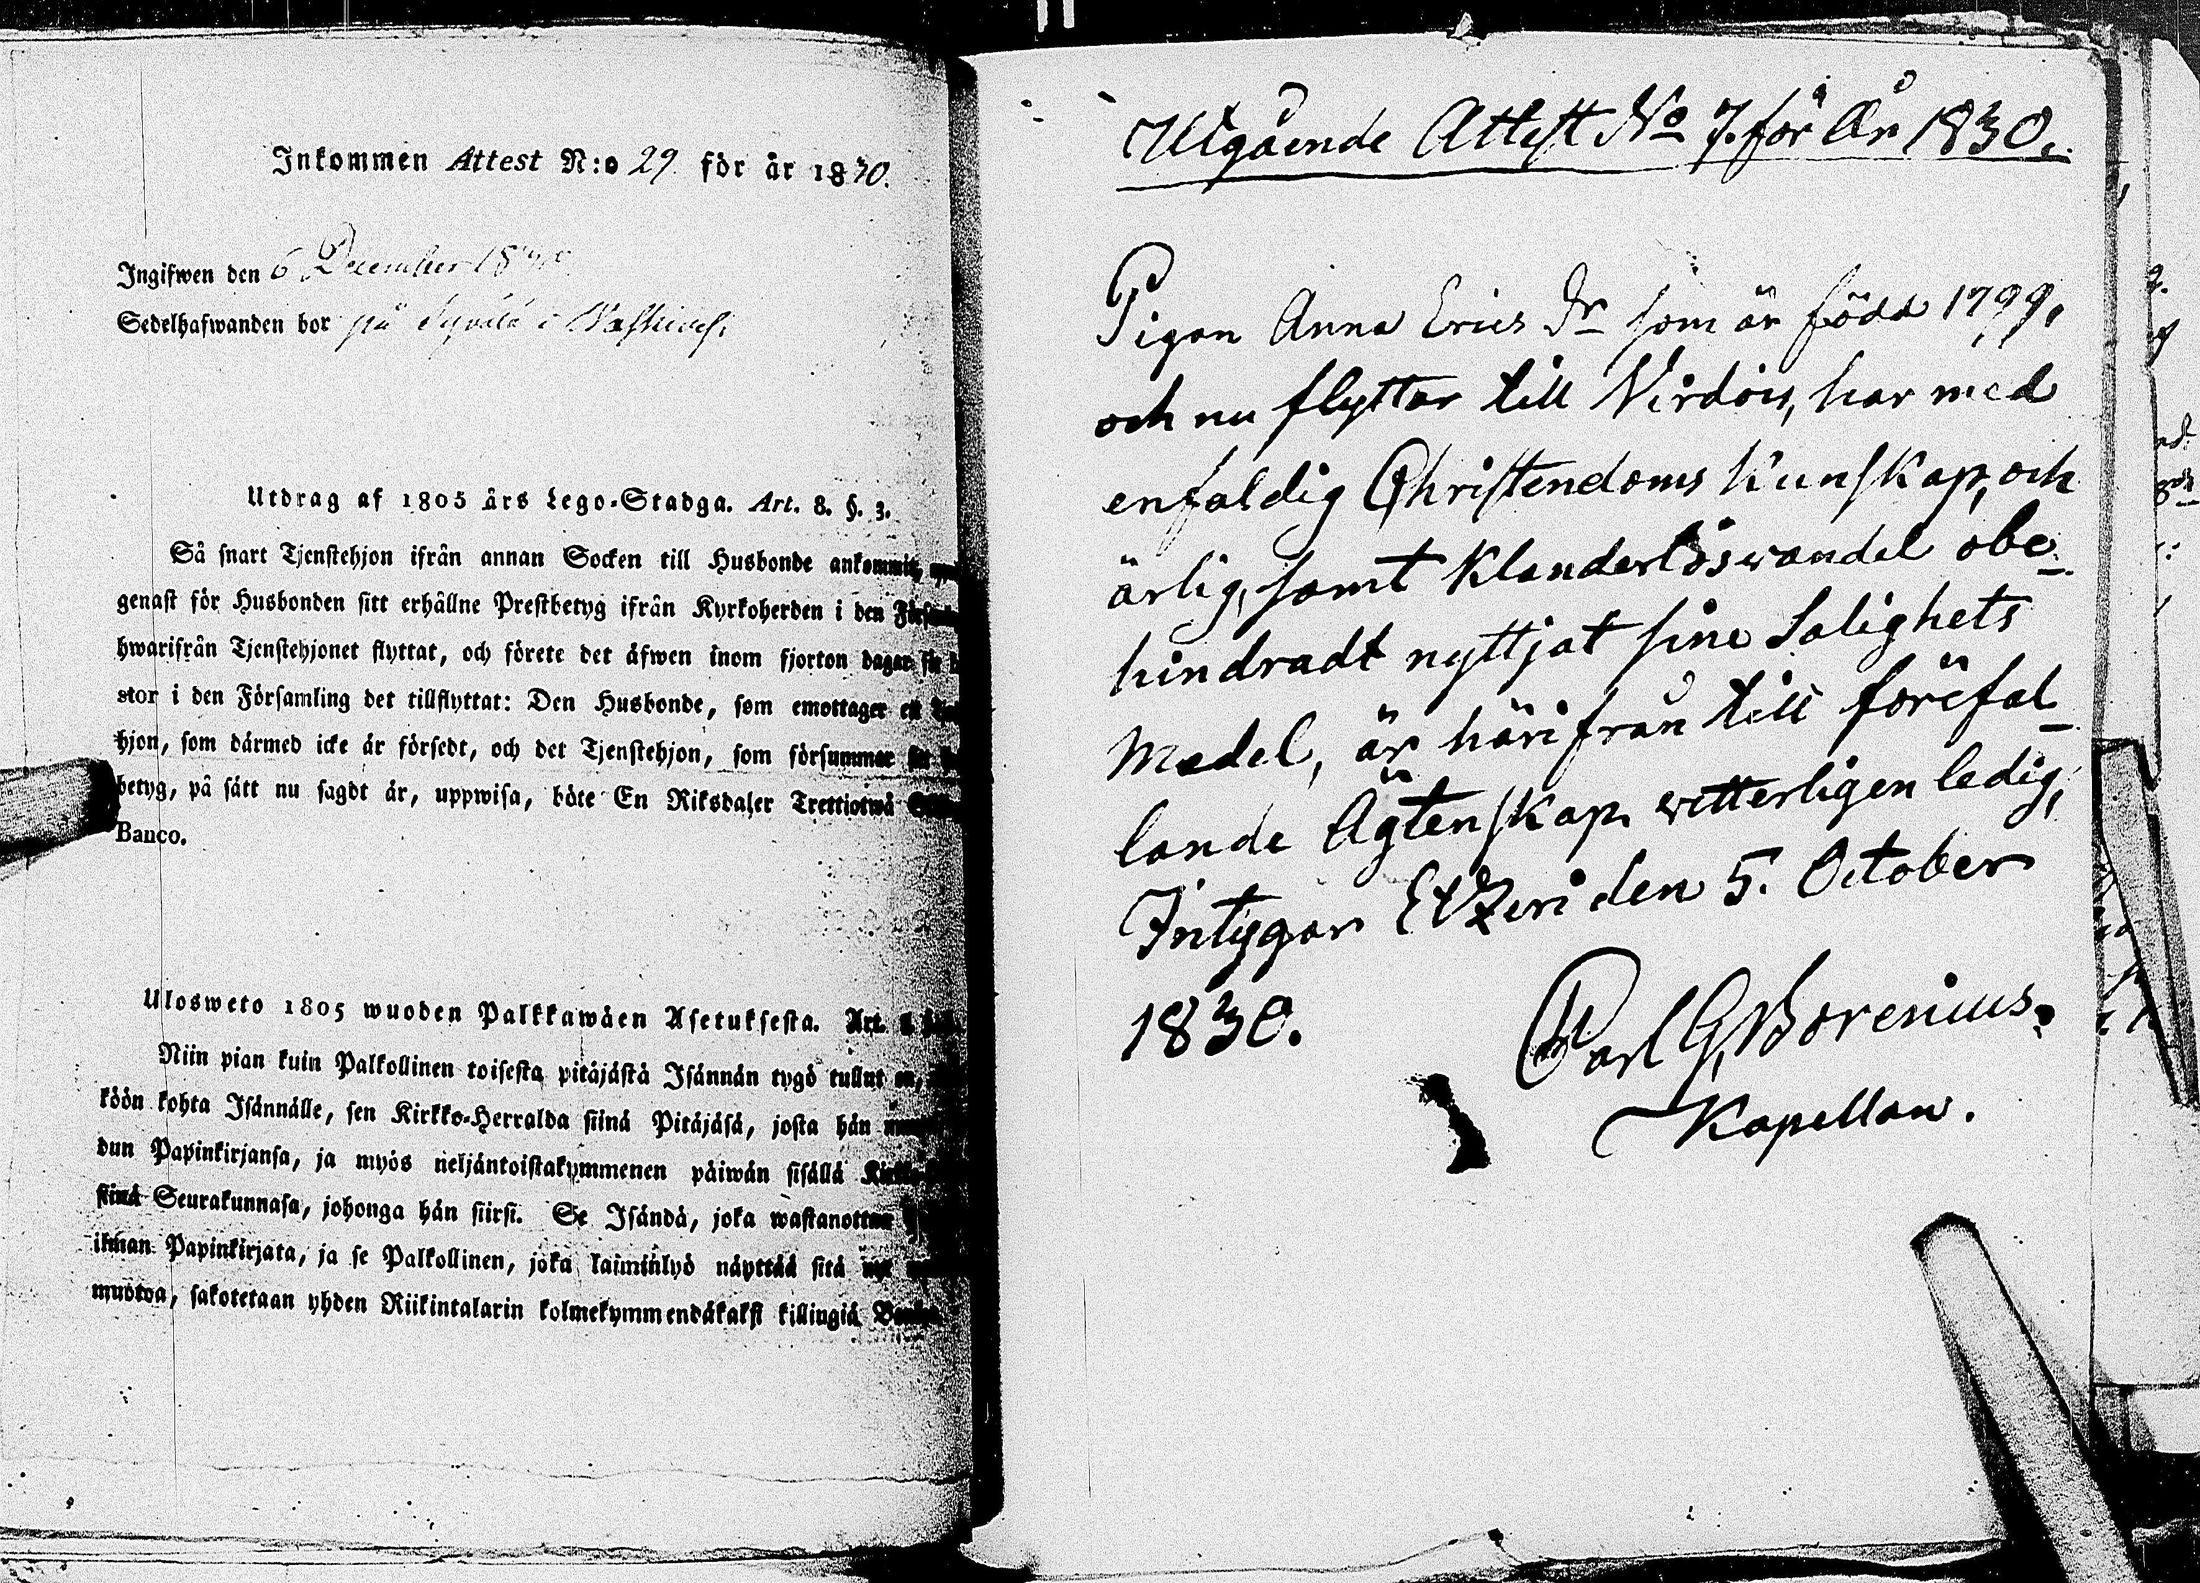 Inkommen Attest N:o 29 för år 1830.
Ingifwen den 6 December 1830
Sedelhafwanden bor på i
Utdrag af 1805 års Lego-Stadga. Art. 8. §. 3.
Så snart Tjenstehjon ifrån annan Socken till Husbonde ankommit,
genast för Husbonden sitt erhållne Prestbetyg ifrån Kyrkoherden i den
hwarifrån Tjenstehjonet flyttat, och förete det äfwen inom fjorton dagar
stor i den Församling det tillflyttat: Den Husbonde, som emottager ett
hjon, som därmed icke är försedt, och det Tjenstehjon, som försummar
betyg, på sätt nu sagdt är, uppwisa, böte En Riksdaler Trettiotwå
Banco.
Ulosweto 1805 wuoden Palkkawäen Asetuksesta. Art.
Niin pian kuin Palkollinen toisesta pitäjästä Isännän tygö tullut on,
köön kohta Isännälle, sen Kirkko-Herralda siinä Pitäjäsä, josta hän
dun Papinkirjansa, ja myös neljäntoistakymmenen päiwän sisällä
siinä Seurakunnasa, johonga hän siirsi. Se Isändä, joka wastanottaa
ilman Papinkirjata, ja se Palkollinen, joka laiminlyö näyttää sitä nyt
muotoa, sakotetaan yhden Riikintalarin kolmekymmendäkaksi killingiä
Utgående Attest No 7. för År 1830.
Pigan Anna Erics Dr som är född 1799,
och nu flyttar till Virdois, har med
enfaldig Christendoms Kunskap, och
ärlig, samt Klanderlös wandel obe-
hindradt nyttjat sine Salighets
Medel, är härifrån till förefal-
lande Ägtenskap witterligen ledig,
Intygar Etzeri den 5. October
1830.
Carl G. Borenius.
Kapellan.